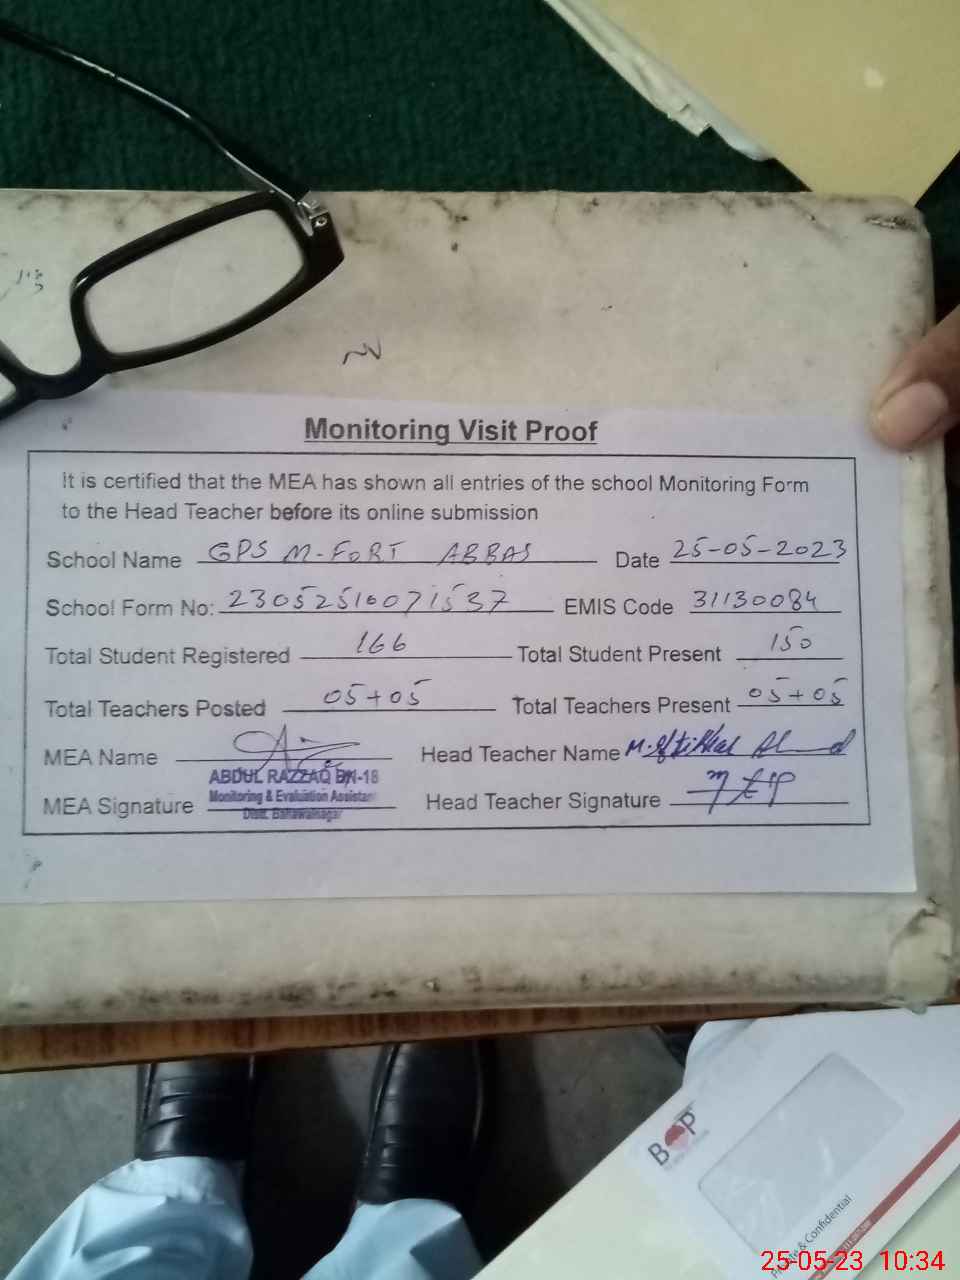 Monitoring Visit Proof
It is certified that the MEA has shown all entries of the school Monitoring Form
to the Head Teacher before its online submission
School Name GPS M-FORT ABBAS Date 25-05-2023
School Form No: 230525100071537 EMIS Code 31130084
Total Student Registered 166 Total Student Present 150
Total Teachers Posted 05+05 Total Teachers Present 05+05
MEA Name Head Teacher Name M. Iftikhar Ahmad
ABDUL RAZZAQ BN-18
Monitoring & Evaluation Assistant
MEA Signature Head Teacher Signature
Distt. Bahawalnagar
BOP
& Confidential
25-05-23 10:34